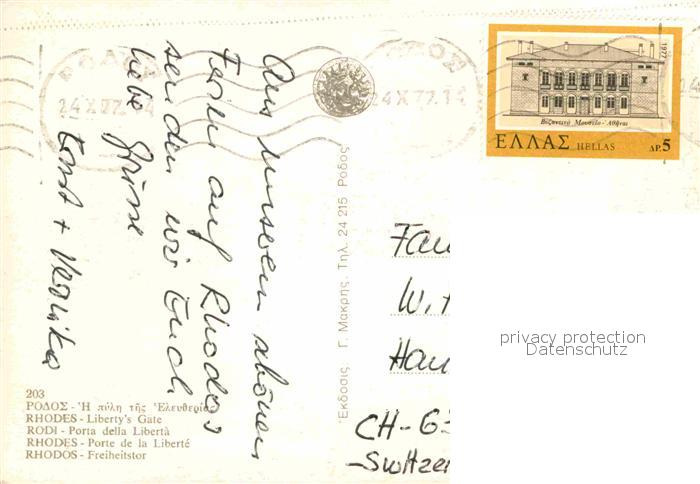 ΡΟΔΟΣ
24 X 77.14
ΡΟΔΟΣ
24 X 77.14
1977
Βυζαντινό Μουσείο - Ἀθῆναι
ΕΛΛΑΣ HELLAS ΔΡ. 5
Aus unseren schönen
Ferien auf Rhodos
senden wir Euch
liebe Grüsse
Ernst + Veronika
Ἔκδοσις Γ. Μακρῆς, Τηλ. 24 215 Ρόδος
Fam
W.
Hau
CH-6
-Switzer
privacy protection
Datenschutz
203
ΡΟΔΟΣ - Ἡ πύλη τῆς Ἐλευθερίας
RHODES - Liberty's Gate
RODI - Porta della Libertà
RHODES - Porte de la Liberté
RHODOS - Freiheitstor